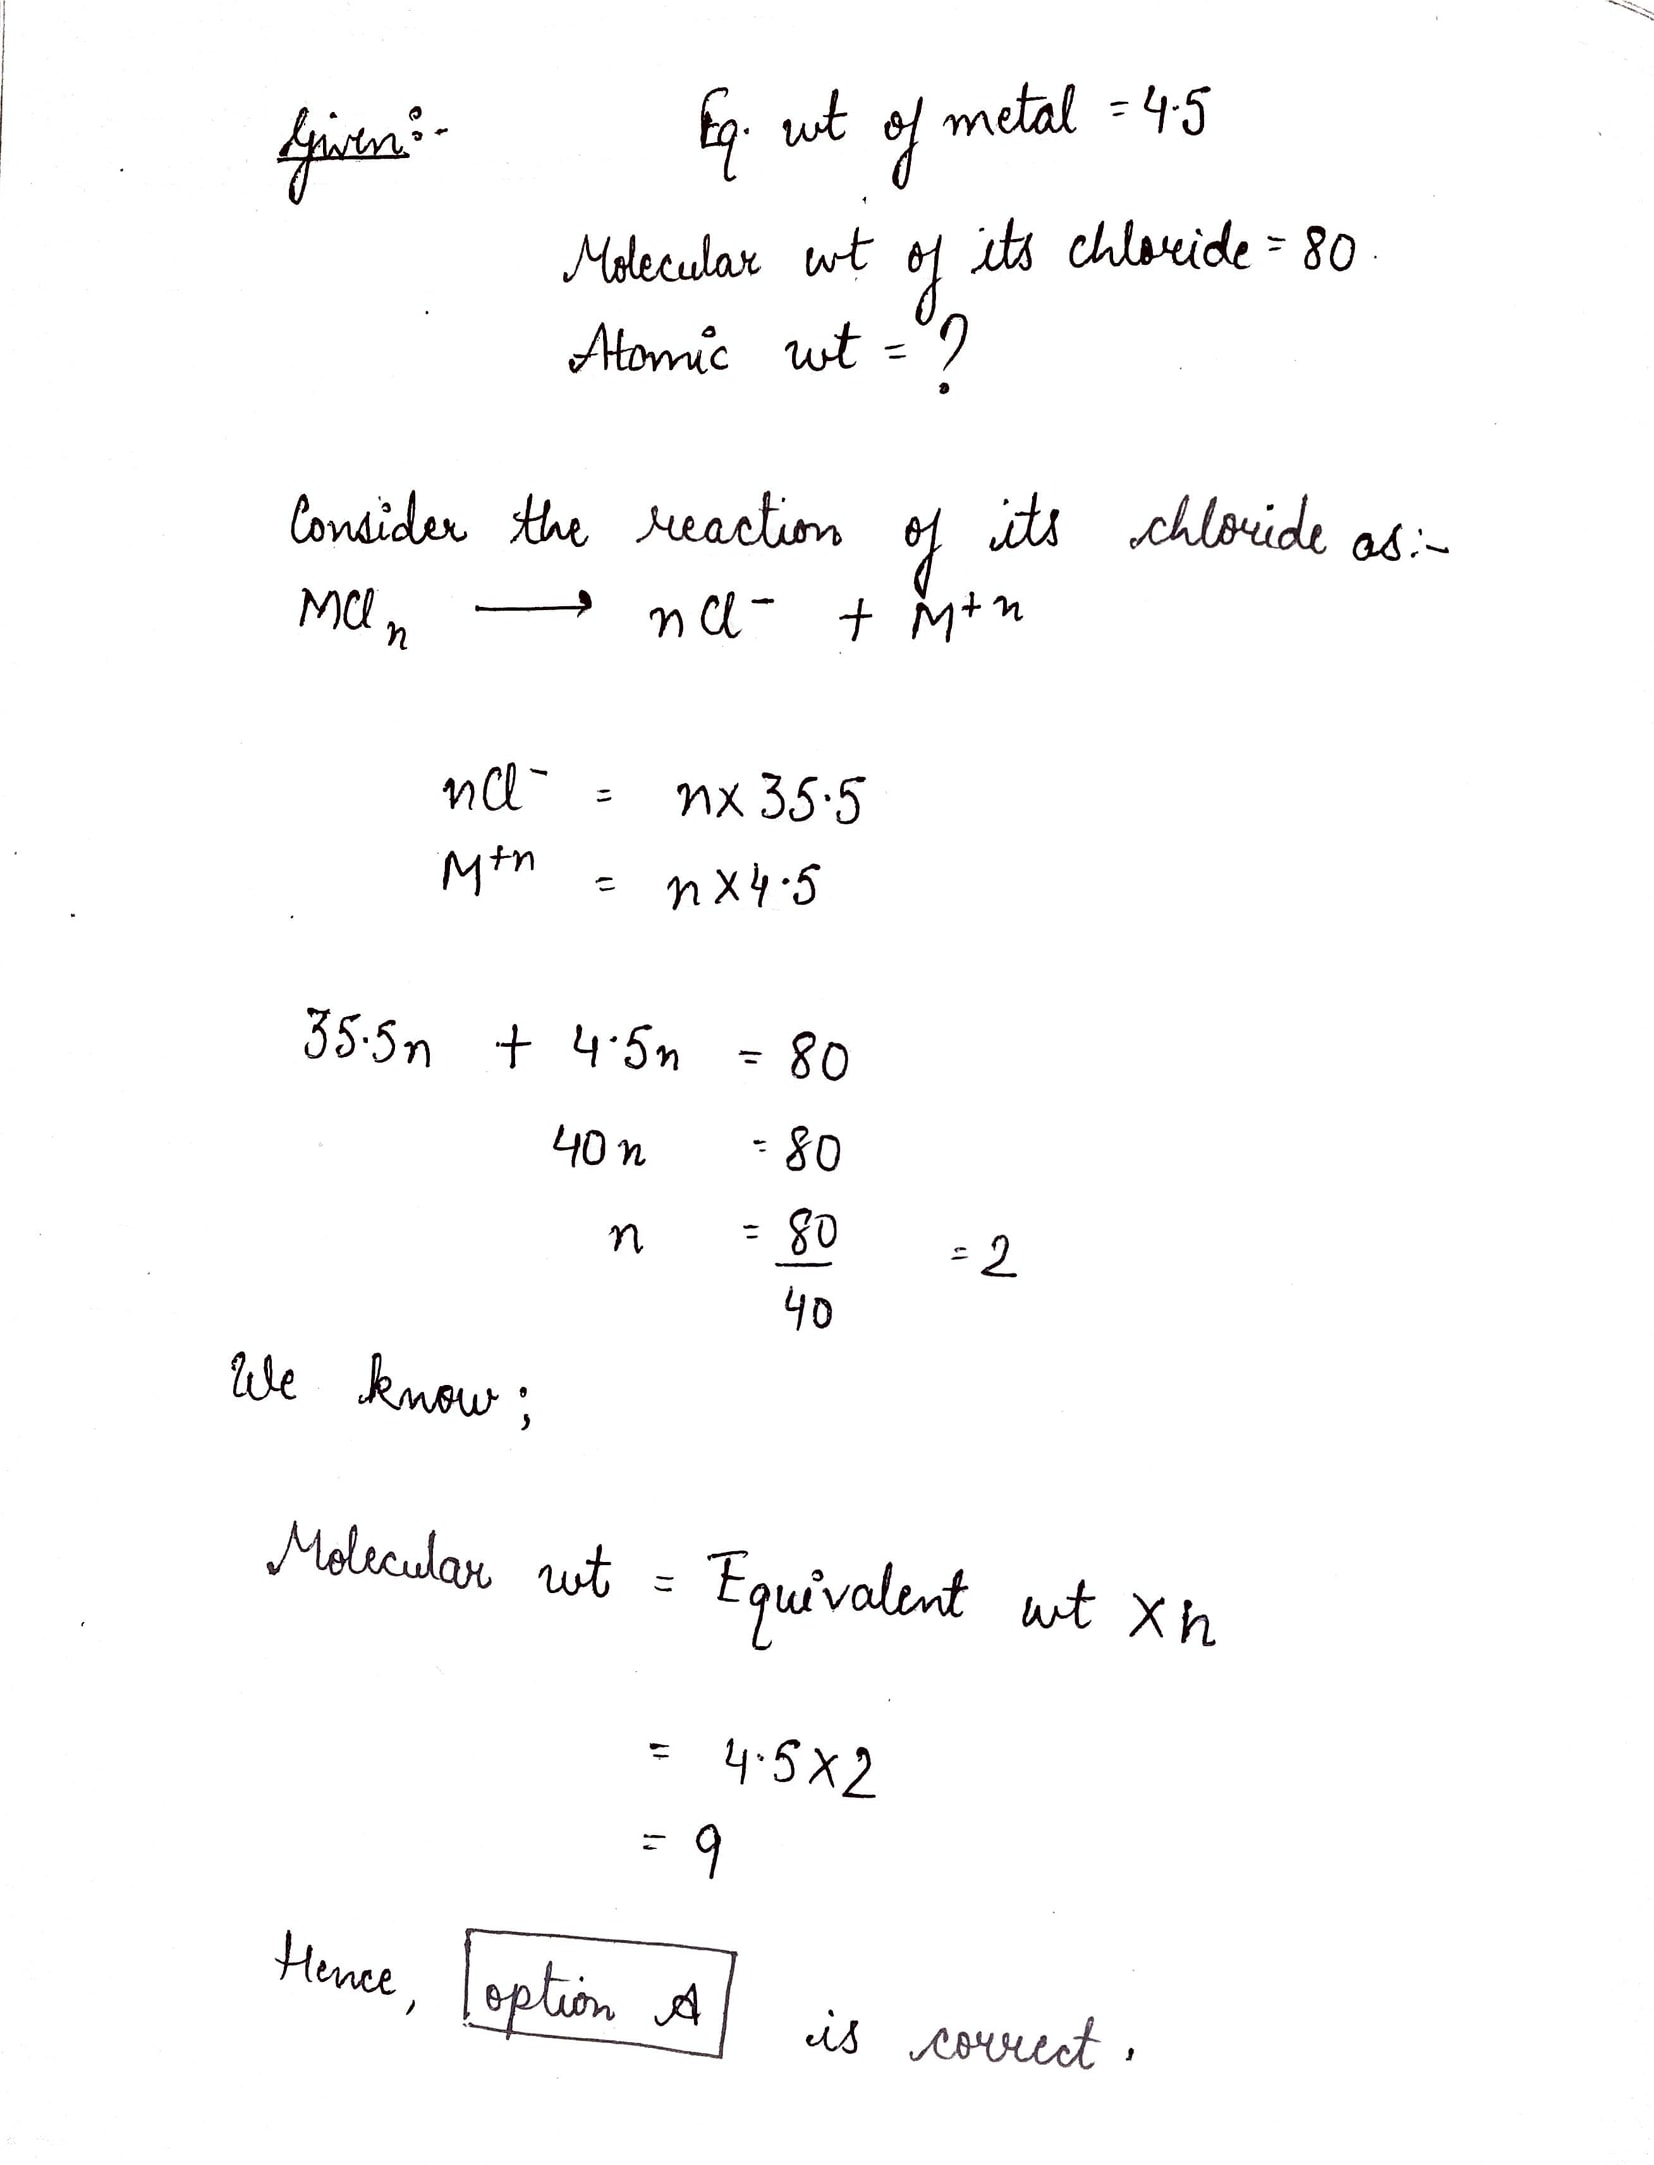 Given:- Eq. wt of metal = 4.5
Molecular wt of its chloride = 80.
Atomic wt = ?
Consider the reaction of its chloride as:-
MCln ⟶ nCl⁻ + M⁺ⁿ
nCl⁻ = n× 35.5
M⁺ⁿ = n×4.5
35.5n + 4.5n = 80
40n = 80
n = 80/40 = 2
We know;
Molecular wt = Equivalent wt × n
= 4.5×2
= 9
Hence, option A is correct.